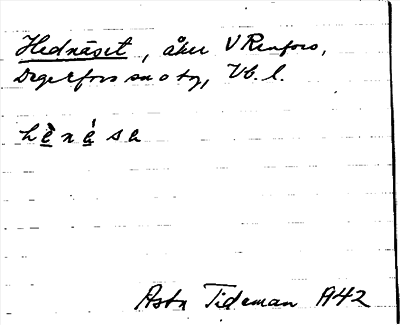 Hednäset, åker V Renfors,
Degerfors sn o tg, Vb. l.
hènésa
Astr Tideman 1942